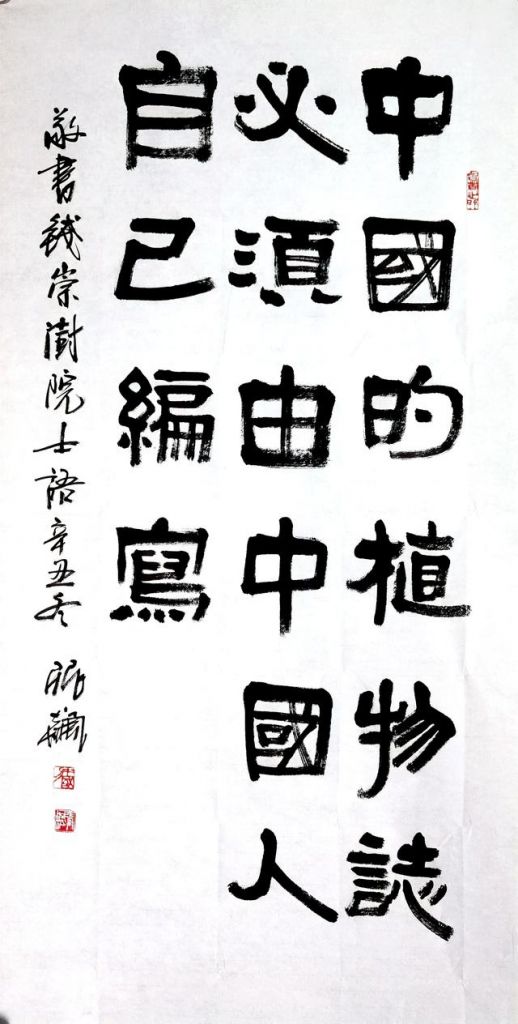 中國的植物誌
必須由中國人
自己編寫
敬書錢崇澍院士語辛丑冬